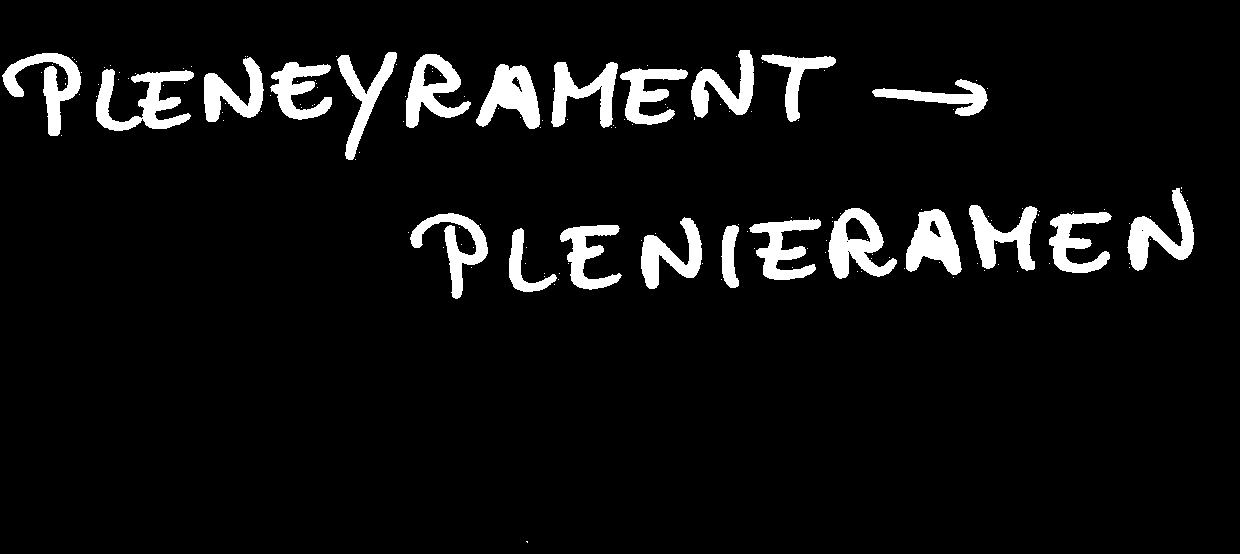 PLENEYRAMENT →
PLENIERAMEN